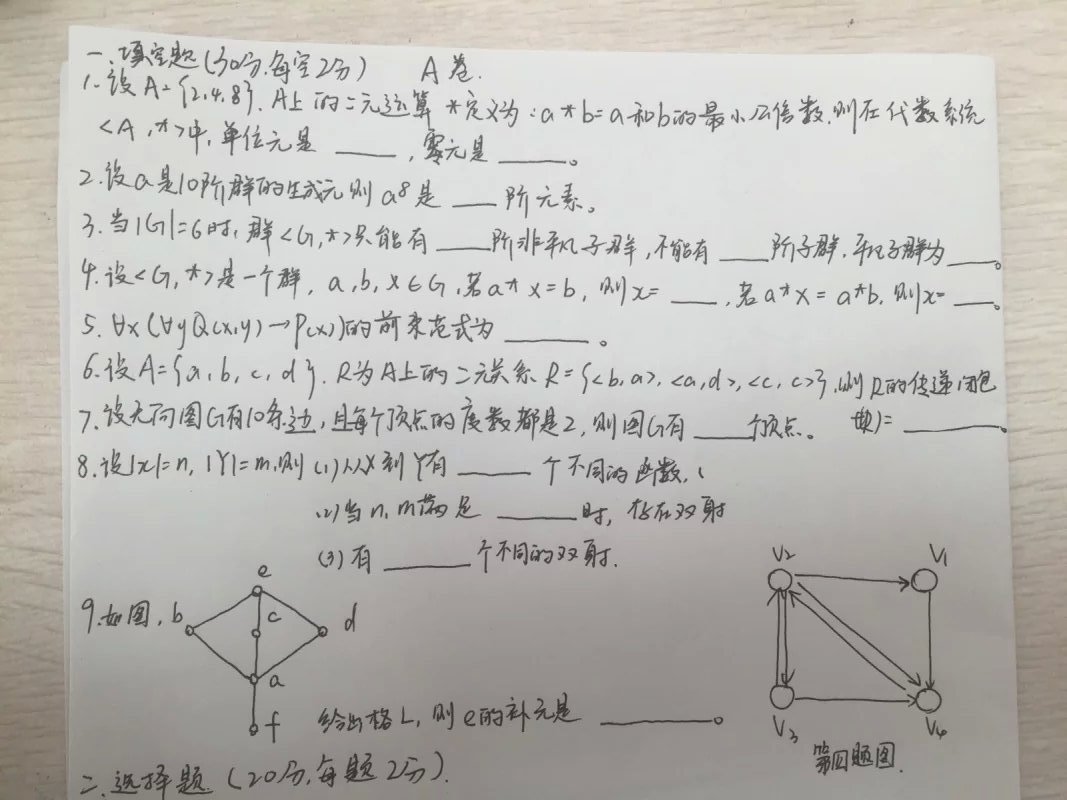 一、填空题(30分,每空2分) A卷.
1.设A={2,4,8},A上的二元运算*定义为:a*b=a和b的最小公倍数,则在代数系统
<A,*>中,单位元是____,零元是____。
2.设a是10阶群的生成元则a⁸是___阶元素。
3.当|G|=6时,群<G,*>只能有____阶非平凡子群,不能有____阶子群,平凡子群为____。
4.设<G,*>是一个群,a,b,x∈G,若a*x=b,则x=____,若a*x=a*b,则x=____。
5.∀x(∀yQ(x,y)→P(x))的前束范式为________。
6.设A={a,b,c,d},R为A上的二元关系R={<b,a>,<a,d>,<c,c>},则R的传递闭包
t(R)=________。
7.设无向图G有10条边,且每个顶点的度数都是2,则图G有____个顶点。
8.设|X|=n,|Y|=m,则(1)从X到Y有_____个不同的函数,
(2)当n,m满足______时,存在双射
(3)有______个不同的双射.
9.如图,
e
b
c
d
a
f
给出格L,则e的补元是________。
V₂
V₁
V₃
V₄
第四题图.
二、选择题(20分,每题2分).